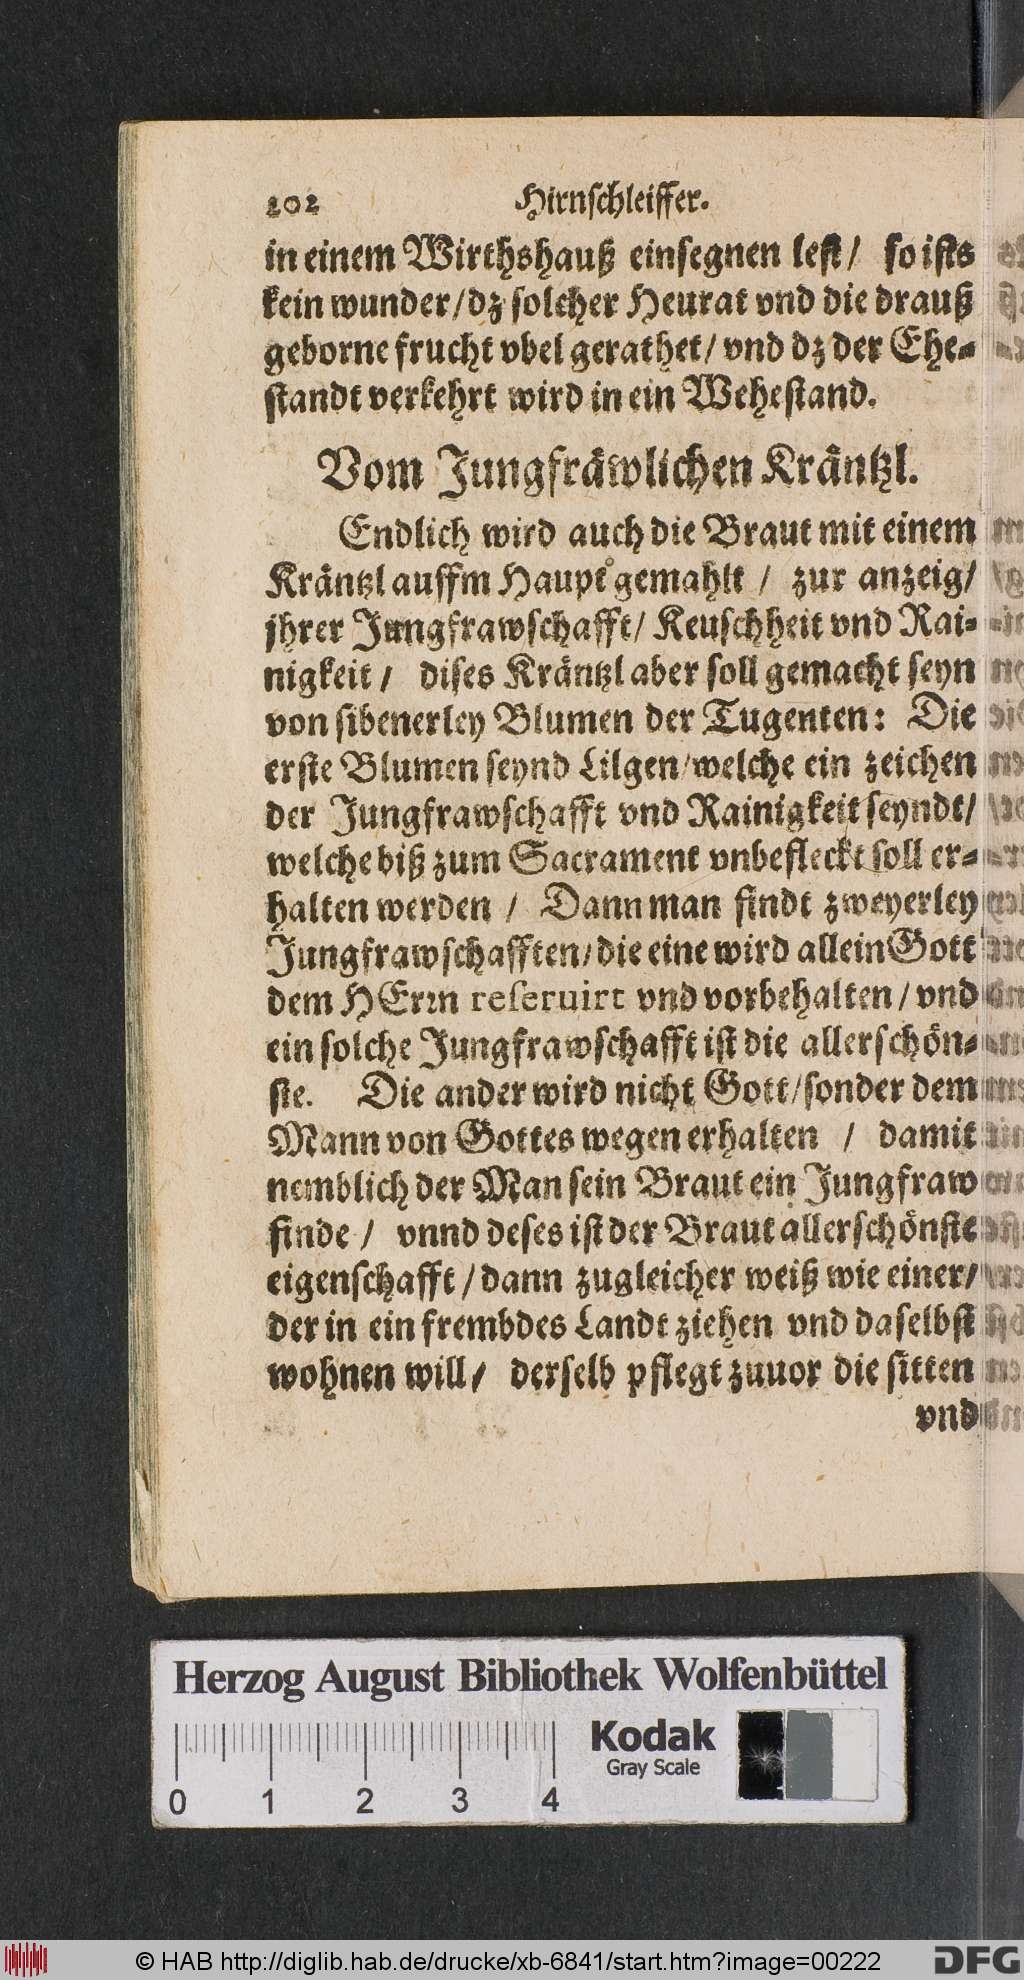 202 Hirnschleiffer.
in einem Wirthshauß einsegnen lest / so ists
kein wunder / dz solcher Heurat vnd die drauß
geborne frucht vbel gerathet / vnd dz der Ehe-
standt verkehrt wird in ein Wehestand.
Vom Jungfräwlichen Kräntzl.
Endlich wird auch die Braut mit einem
Kräntzl auffm Haupt gemahlt / zur anzeig /
jhrer Jungfrawschafft / Keuschheit vnd Rai-
nigkeit / dises Kräntzl aber soll gemacht seyn
von sibenerley Blumen der Tugenten: Die
erste Blumen seynd Lilgen / welche ein zeichen
der Jungfrawschafft vnd Rainigkeit seyndt /
welche biß zum Sacrament vnbefleckt soll er-
halten werden / Dann man findt zweyerley
Jungfrawschafften / die eine wird allein Gott
dem HErrn reseruirt vnd vorbehalten / vnd
ein solche Jungfrawschafft ist die allerschön-
ste. Die ander wird nicht Gott / sonder dem
Mann von Gottes wegen erhalten / damit
nemblich der Man sein Braut ein Jungfraw
finde / vnnd deses ist der Braut allerschönste
eigenschafft / dann zugleicher weiß wie einer /
der in ein frembdes Landt ziehen vnd daselbst
wohnen will / derselb pflegt zuuor die sitten
vnd
Herzog August Bibliothek Wolfenbüttel
Kodak
Gray Scale
0 1 2 3 4
© HAB http://diglib.hab.de/drucke/xb-6841/start.htm?image=00222
DFG